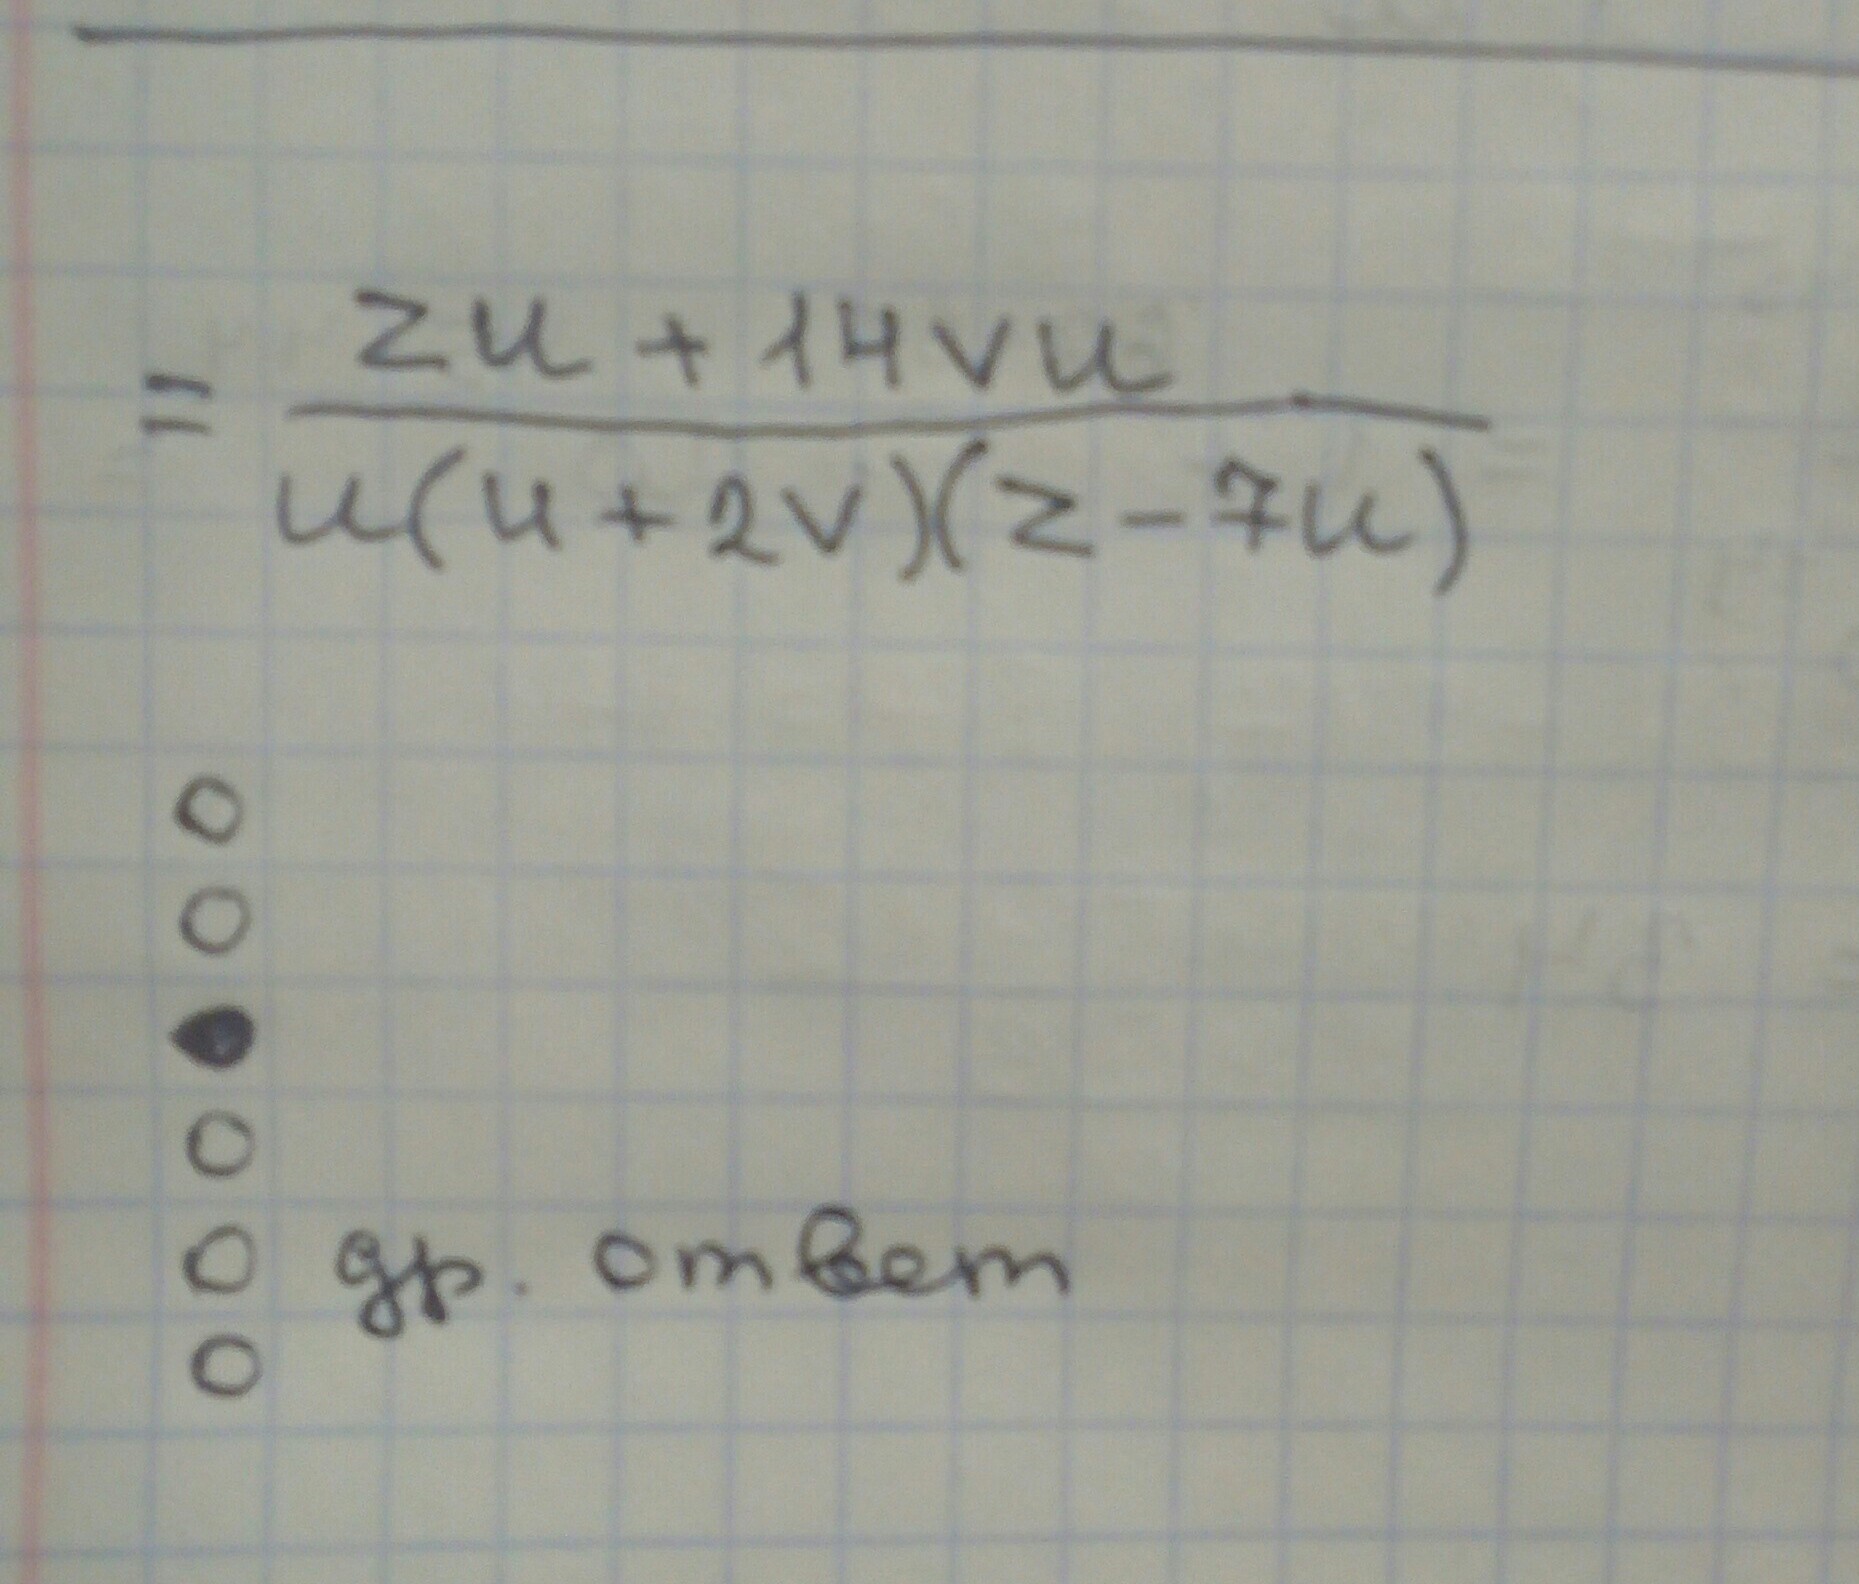 = zu + 14vu
u(u+2v)(z-7u)
др. ответ